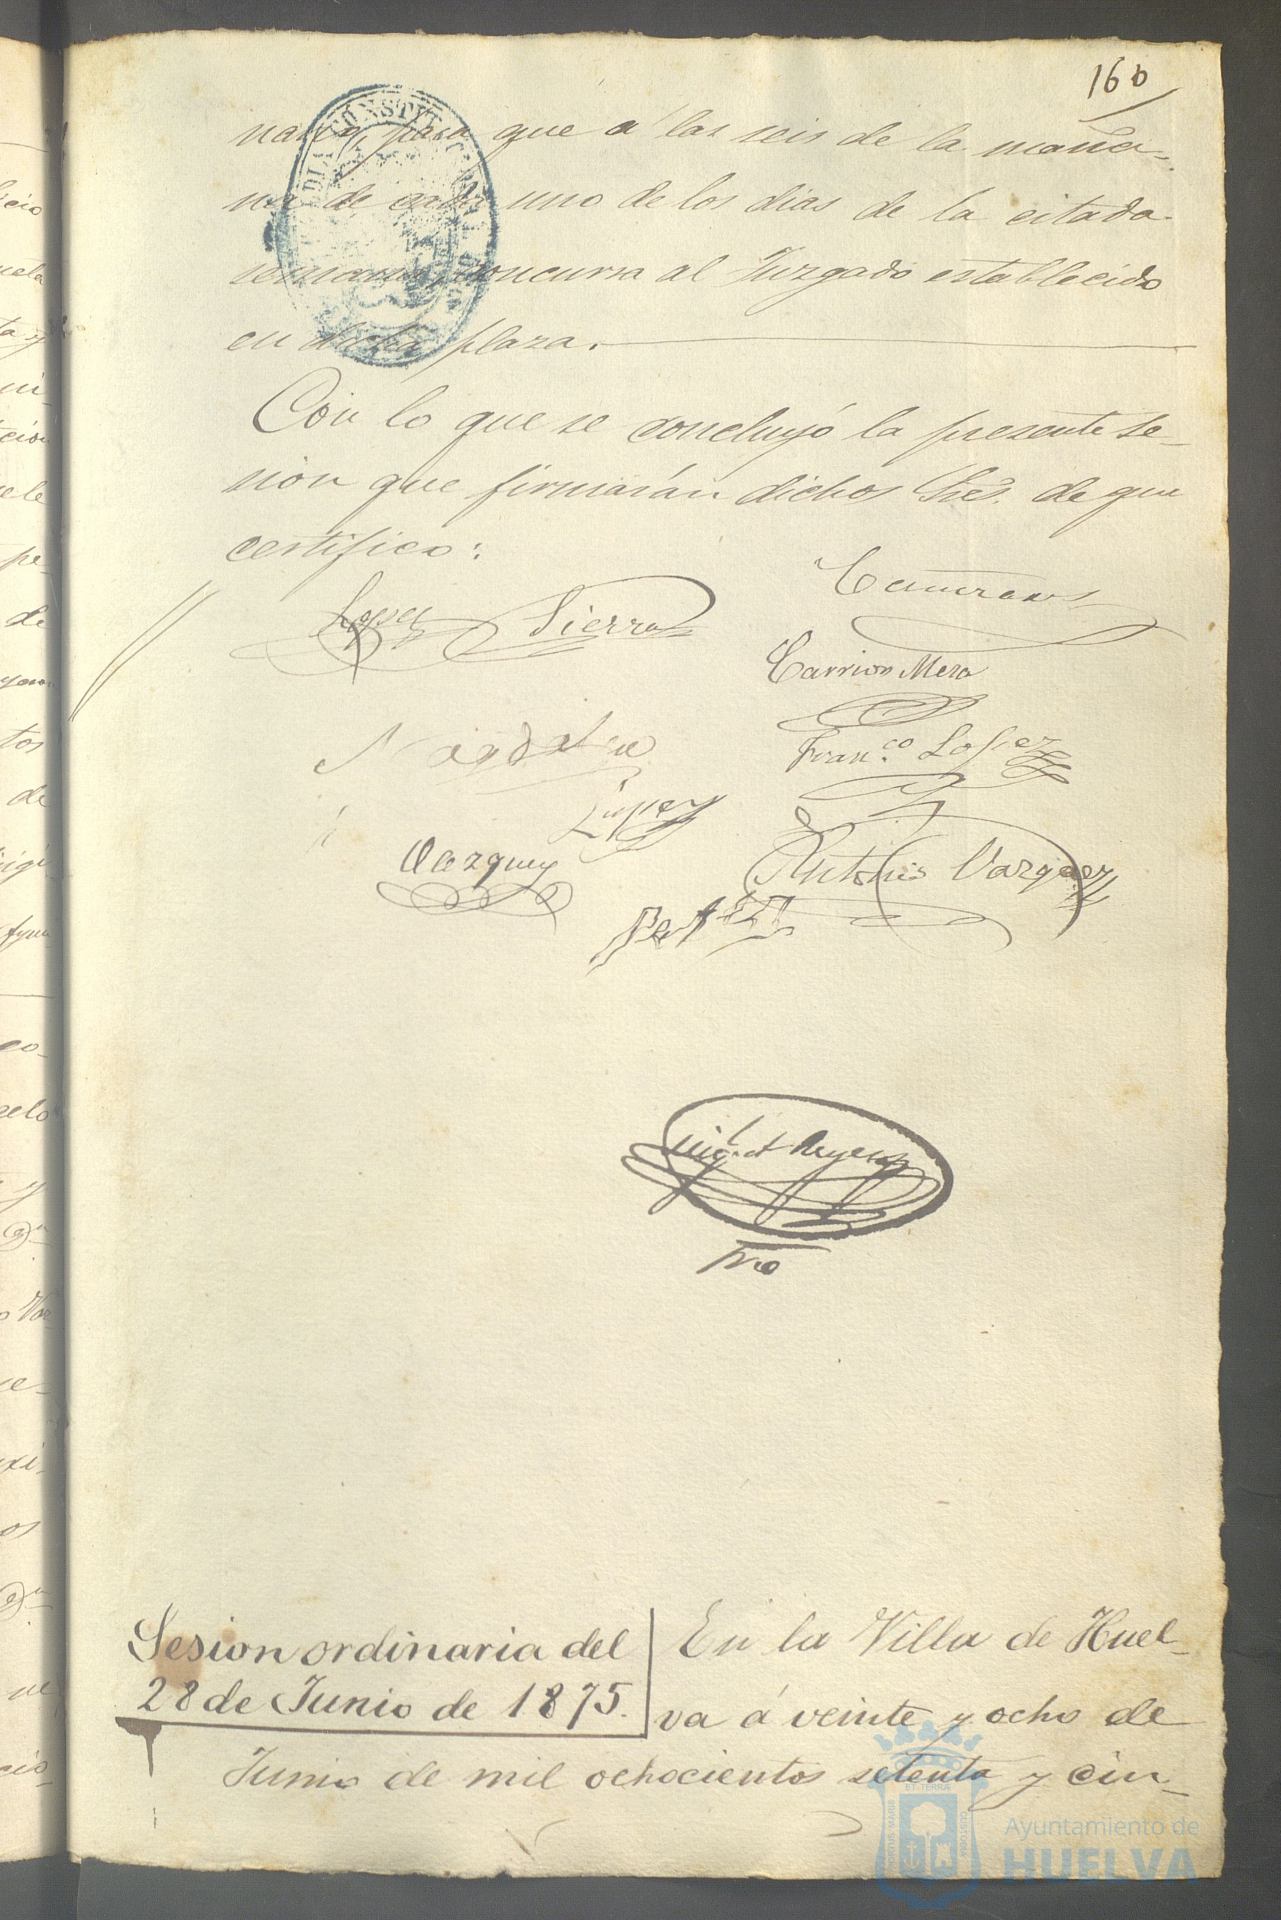 160
nario, para que á las seis de la maña-
na de cada uno de los dias de la citada
semana, concurra al Juzgado establecido
en dicha plaza.
Con lo que se concluyó la presente se-
sion que firmarán dichos Sres. de que
certifico:
Lopez Sierra
Carrion Mero
Magdalena
Franco Lopez
Lopez
Vazquez
Antonio Vazquez
Miguel Reyes
Srio
Sesion ordinaria del
28 de Junio de 1875.
En la Villa de Huel-
va á veinte y ocho de
Junio de mil ochocientos setenta y cin-
Ayuntamiento de
HUELVA